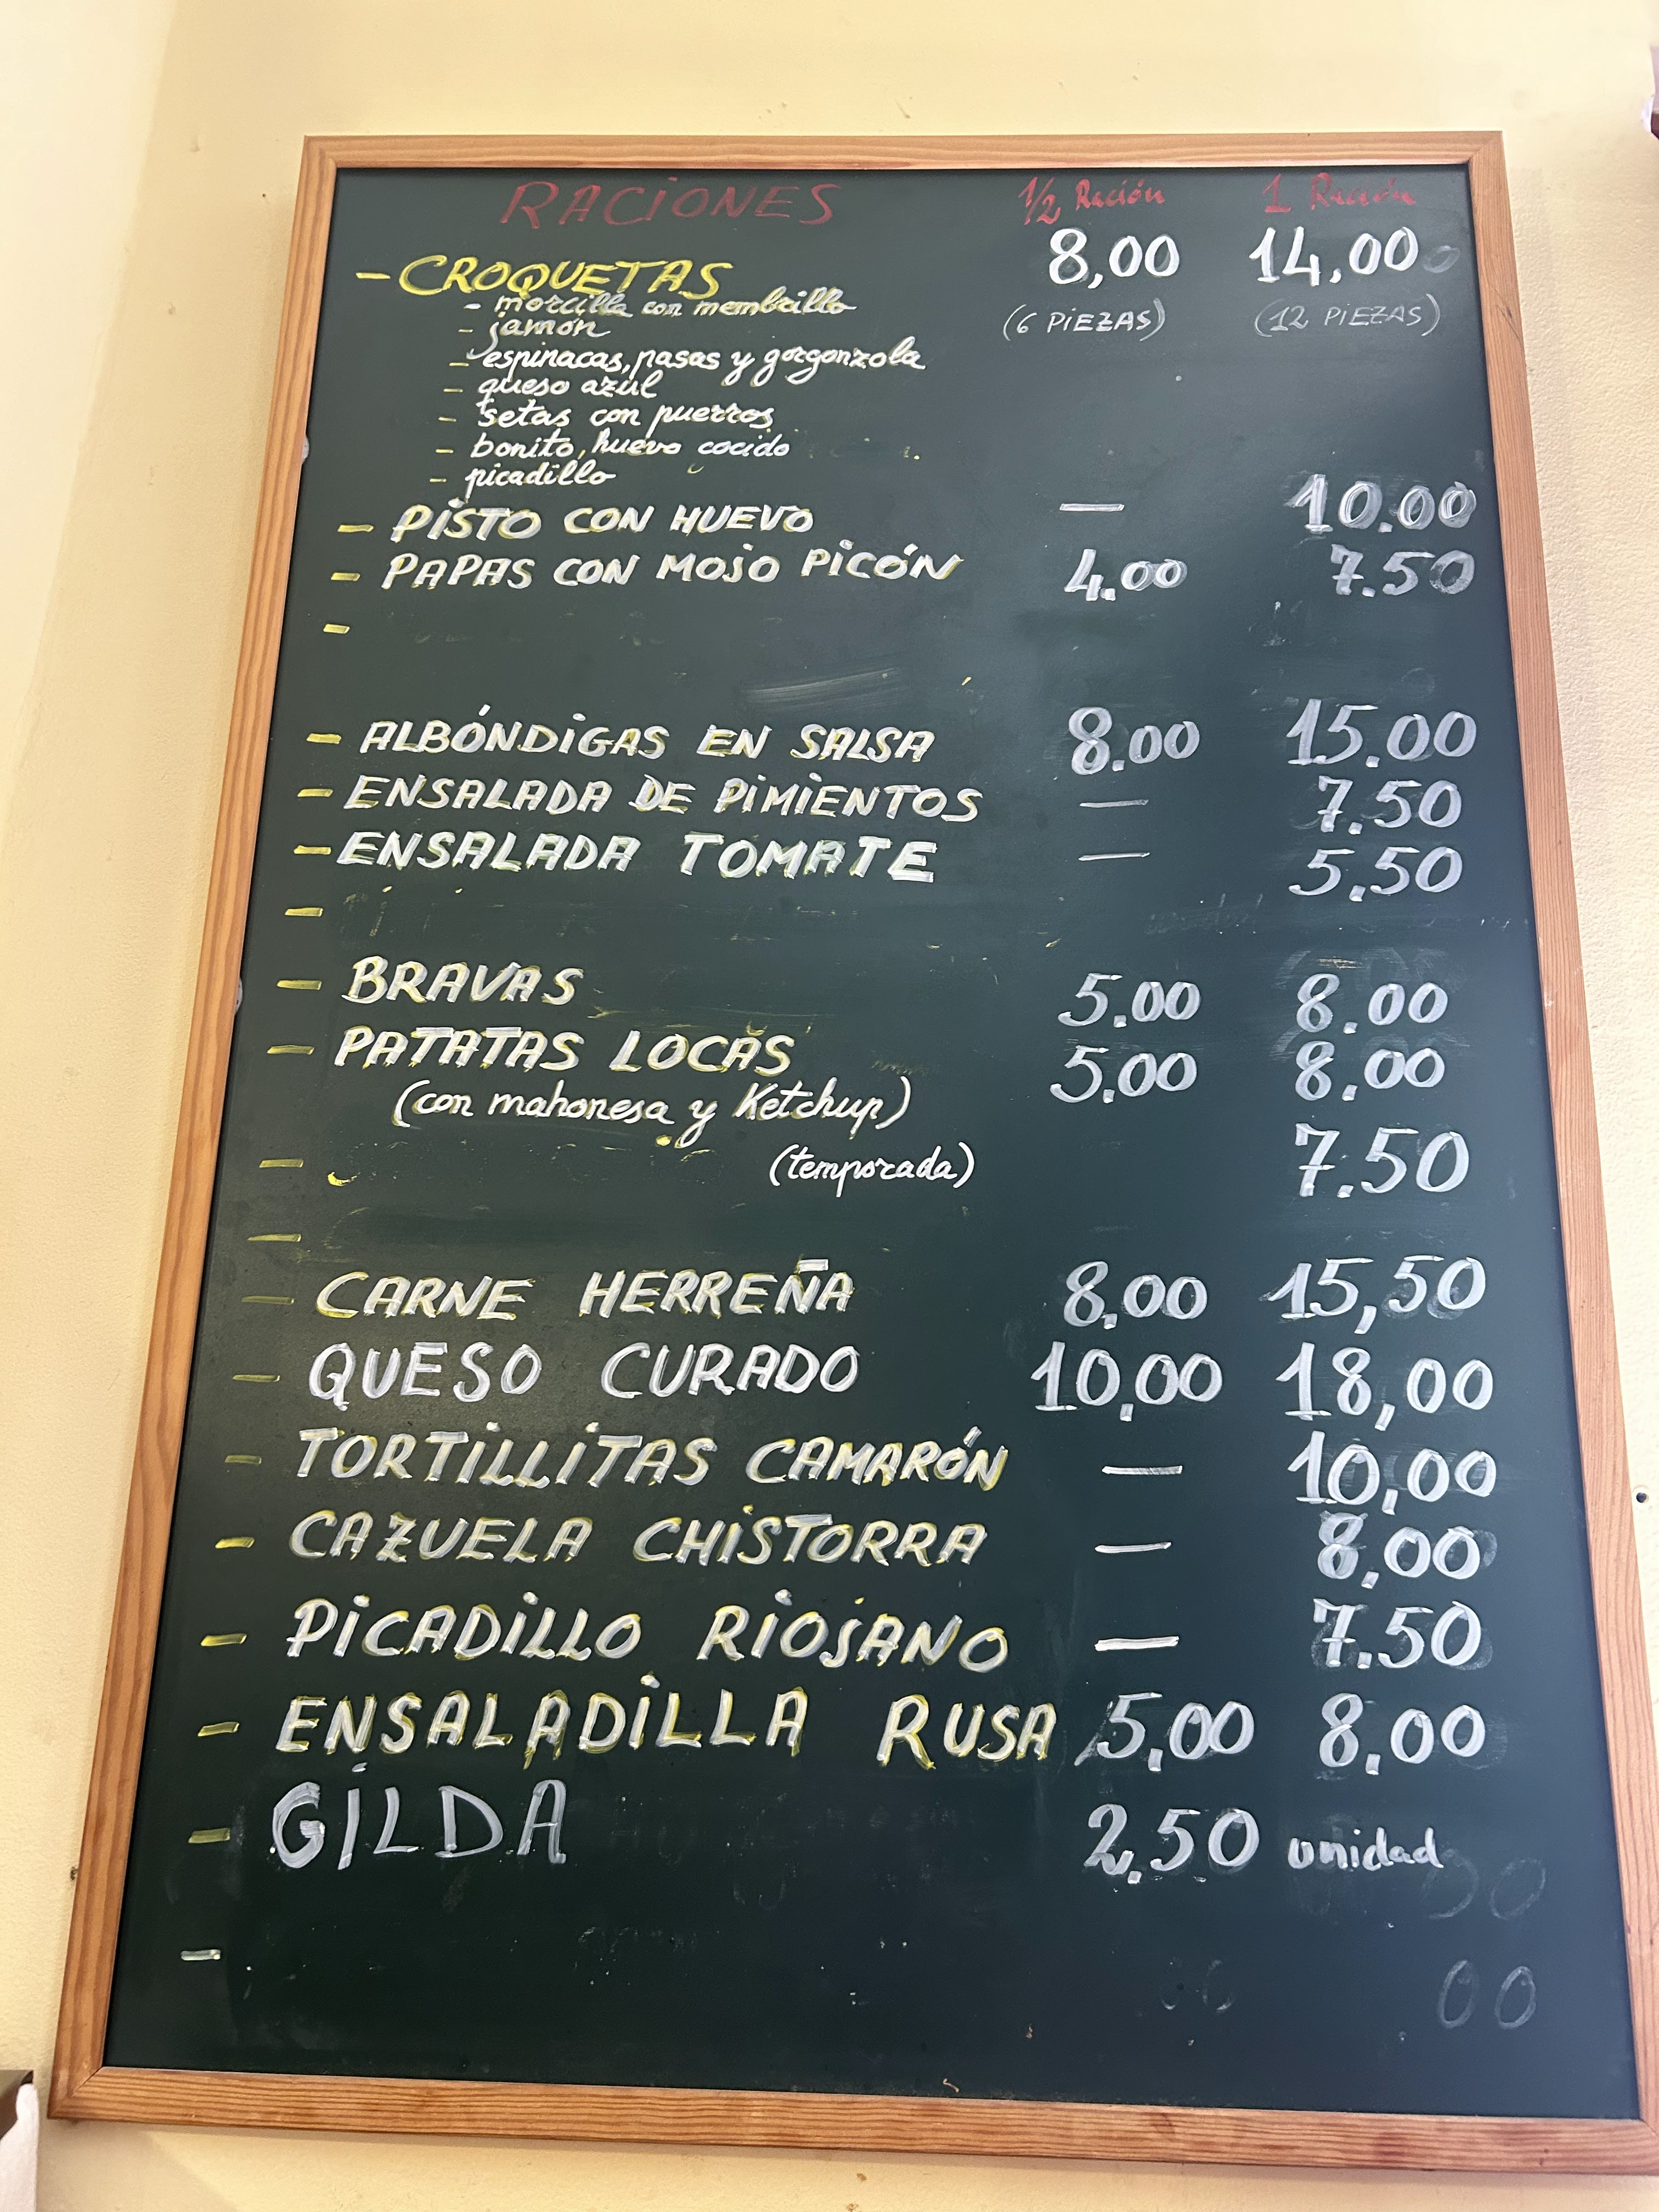 RACIONES 1/2 Ración 1 Ración
- CROQUETAS 8,00 14,00
- morcilla con membrillo (6 PIEZAS) (12 PIEZAS)
- jamón
- espinacas, pasas y gorgonzola
- queso azul
- setas con puerros
- bonito, huevo cocido
- picadillo
- PISTO CON HUEVO — 10.00
- PAPAS CON MOJO PICÓN 4.00 7.50
-
- ALBÓNDIGAS EN SALSA 8.00 15.00
- ENSALADA DE PIMIENTOS — 7.50
- ENSALADA TOMATE — 5.50
-
- BRAVAS 5.00 8.00
- PATATAS LOCAS 5.00 8.00
(con mahonesa y Ketchup)
- (temporada) 7.50
-
- CARNE HERREÑA 8,00 15,50
- QUESO CURADO 10,00 18,00
- TORTILLITAS CAMARÓN — 10,00
- CAZUELA CHISTORRA — 8,00
- PICADILLO RIOJANO — 7.50
- ENSALADILLA RUSA 5,00 8,00
- GILDA 2,50 unidad
-